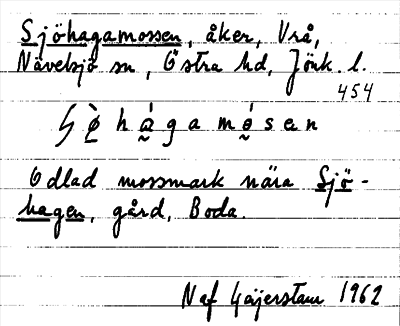 Sjöhagamossen, åker, Vrå,
Nävelsjö sn, Östra hd, Jönk. l.
454
hagamosen
Odlad mossmark nära Sjö-
hagen, gård, Boda.
1962